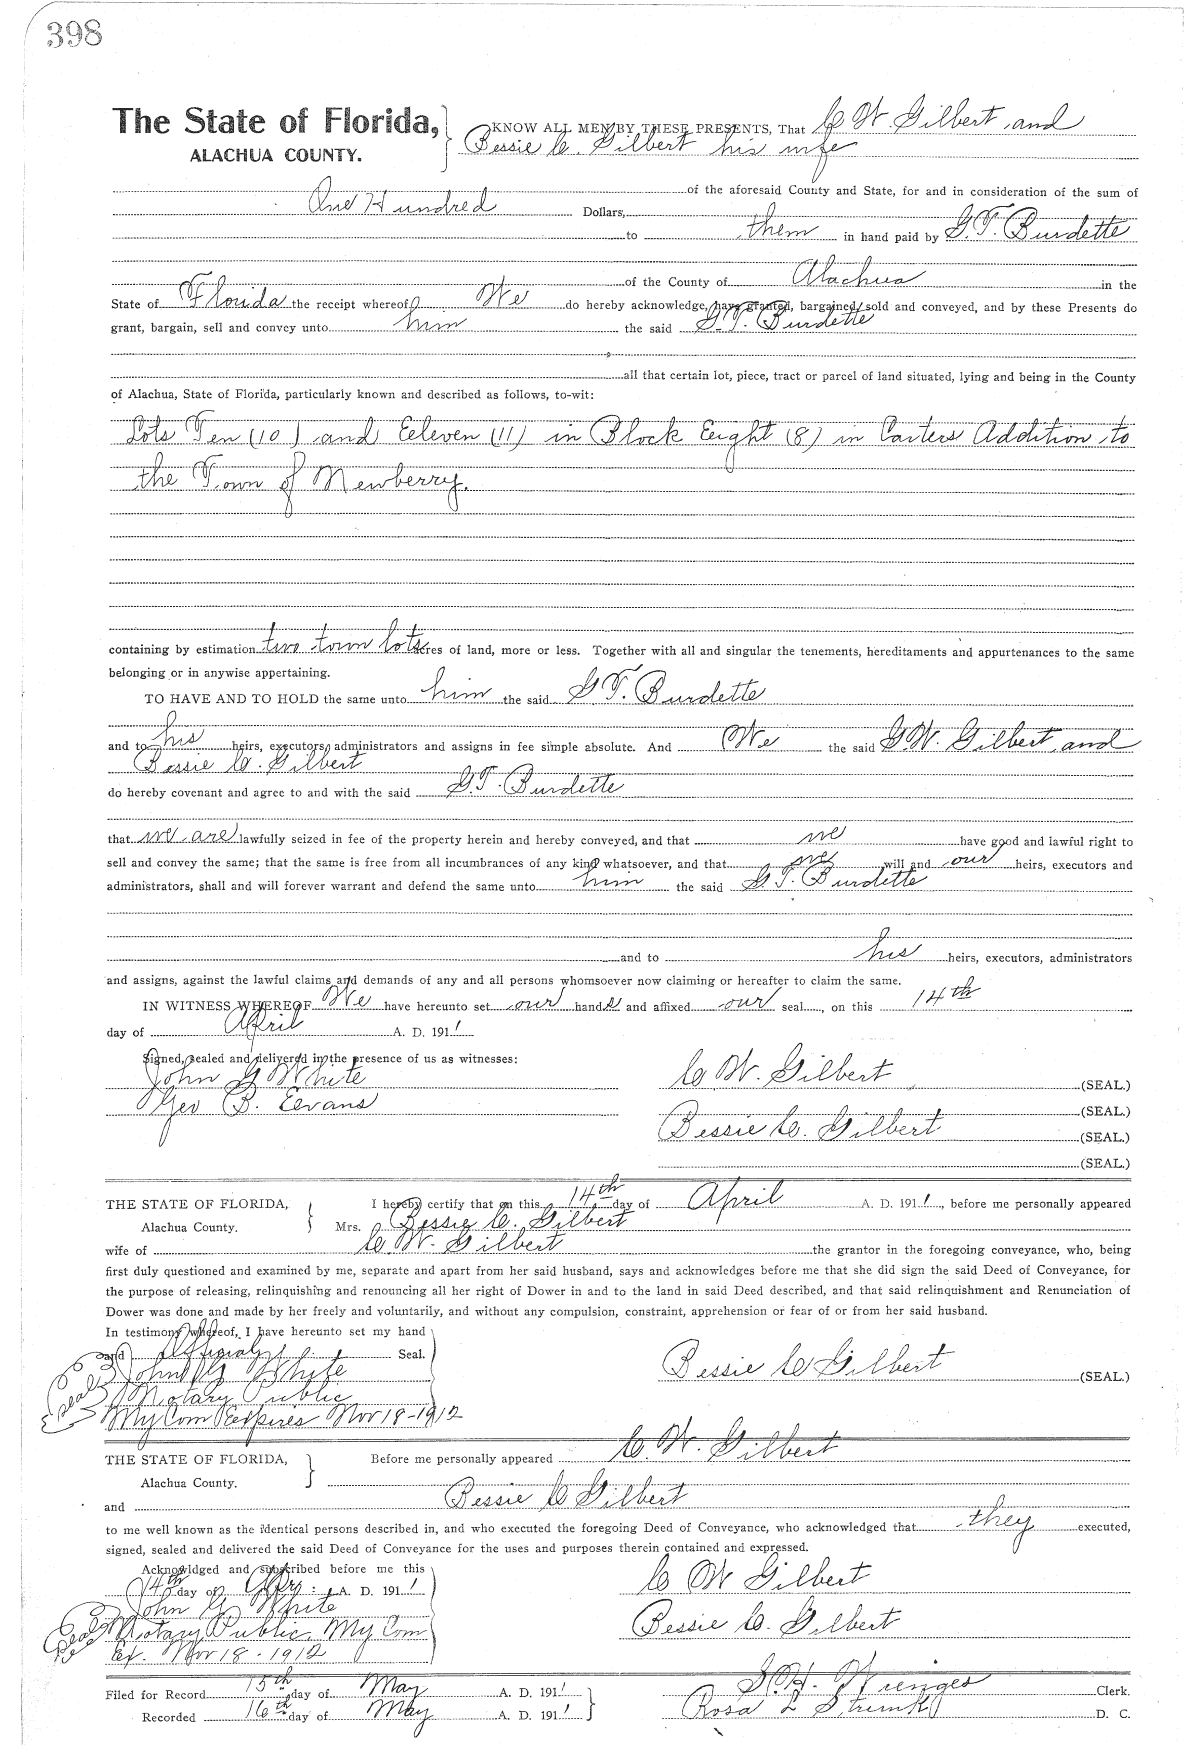 398
The State of Florida, KNOW ALL MEN BY THESE PRESENTS, That C W. Gilbert and
ALACHUA COUNTY. Bessie C. Gilbert his wife
of the aforesaid County and State, for and in consideration of the sum of
One Hundred Dollars,
to them in hand paid by G.T. Burdette
of the County of Alachua in the
State of Florida the receipt whereof We do hereby acknowledge, have granted, bargained, sold and conveyed, and by these Presents do
grant, bargain, sell and convey unto him the said G.T. Burdette
all that certain lot, piece, tract or parcel of land situated, lying and being in the County
of Alachua, State of Florida, particularly known and described as follows, to-wit:
Lots Ten (10) and Eeleven (11) in Block Eeight (8) in Carters Addition to
the Town of Newberry.
containing by estimation two town lots acres of land, more or less. Together with all and singular the tenements, hereditaments and appurtenances to the same
belonging or in anywise appertaining.
TO HAVE AND TO HOLD the same unto him the said G.T. Burdette
and to his heirs, executors, administrators and assigns in fee simple absolute. And We the said G.W. Gilbert and
Bessie C. Gilbert
do hereby covenant and agree to and with the said G.T. Burdette
that we are lawfully seized in fee of the property herein and hereby conveyed, and that we have good and lawful right to
sell and convey the same; that the same is free from all incumbrances of any kind whatsoever, and that we will and our heirs, executors and
administrators, shall and will forever warrant and defend the same unto him the said G.T. Burdette
and to his heirs, executors, administrators
and assigns, against the lawful claims and demands of any and all persons whomsoever now claiming or hereafter to claim the same.
IN WITNESS WHEREOF We have hereunto set our hands and affixed our seal, on this 14th
day of April A. D. 1911
Signed, sealed and delivered in the presence of us as witnesses:
John G White C W. Gilbert (SEAL.)
Geo B. Eevans (SEAL.)
Bessie C. Gilbert (SEAL.)
(SEAL.)
THE STATE OF FLORIDA, I hereby certify that on this 14th day of April A. D. 1911, before me personally appeared
Alachua County. Mrs. Bessie C. Gilbert
wife of C W. Gilbert the grantor in the foregoing conveyance, who, being
first duly questioned and examined by me, separate and apart from her said husband, says and acknowledges before me that she did sign the said Deed of Conveyance, for
the purpose of releasing, relinquishing and renouncing all her right of Dower in and to the land in said Deed described, and that said relinquishment and Renunciation of
Dower was done and made by her freely and voluntarily, and without any compulsion, constraint, apprehension or fear of or from her said husband.
In testimony whereof, I have hereunto set my hand
and official Seal.
(Seal) John G White Bessie C Gilbert (SEAL.)
Notary Public
My Com Eexpires Nov 18-1912
THE STATE OF FLORIDA, Before me personally appeared C. W. Gilbert
Alachua County.
and Bessie C Gilbert
to me well known as the identical persons described in, and who executed the foregoing Deed of Conveyance, who acknowledged that they executed,
signed, sealed and delivered the said Deed of Conveyance for the uses and purposes therein contained and expressed.
Acknowldged and subscribed before me this
14th day of Apr: A. D. 1911 C W Gilbert
John G White
(Seal) Notary Public, My Com Bessie C. Gilbert
Ex. Nov 18-1912
Filed for Record 15th day of May A. D. 1911 S.H. Wienges Clerk.
Recorded 16th day of May A. D. 1911 Rosa L Strunk D. C.